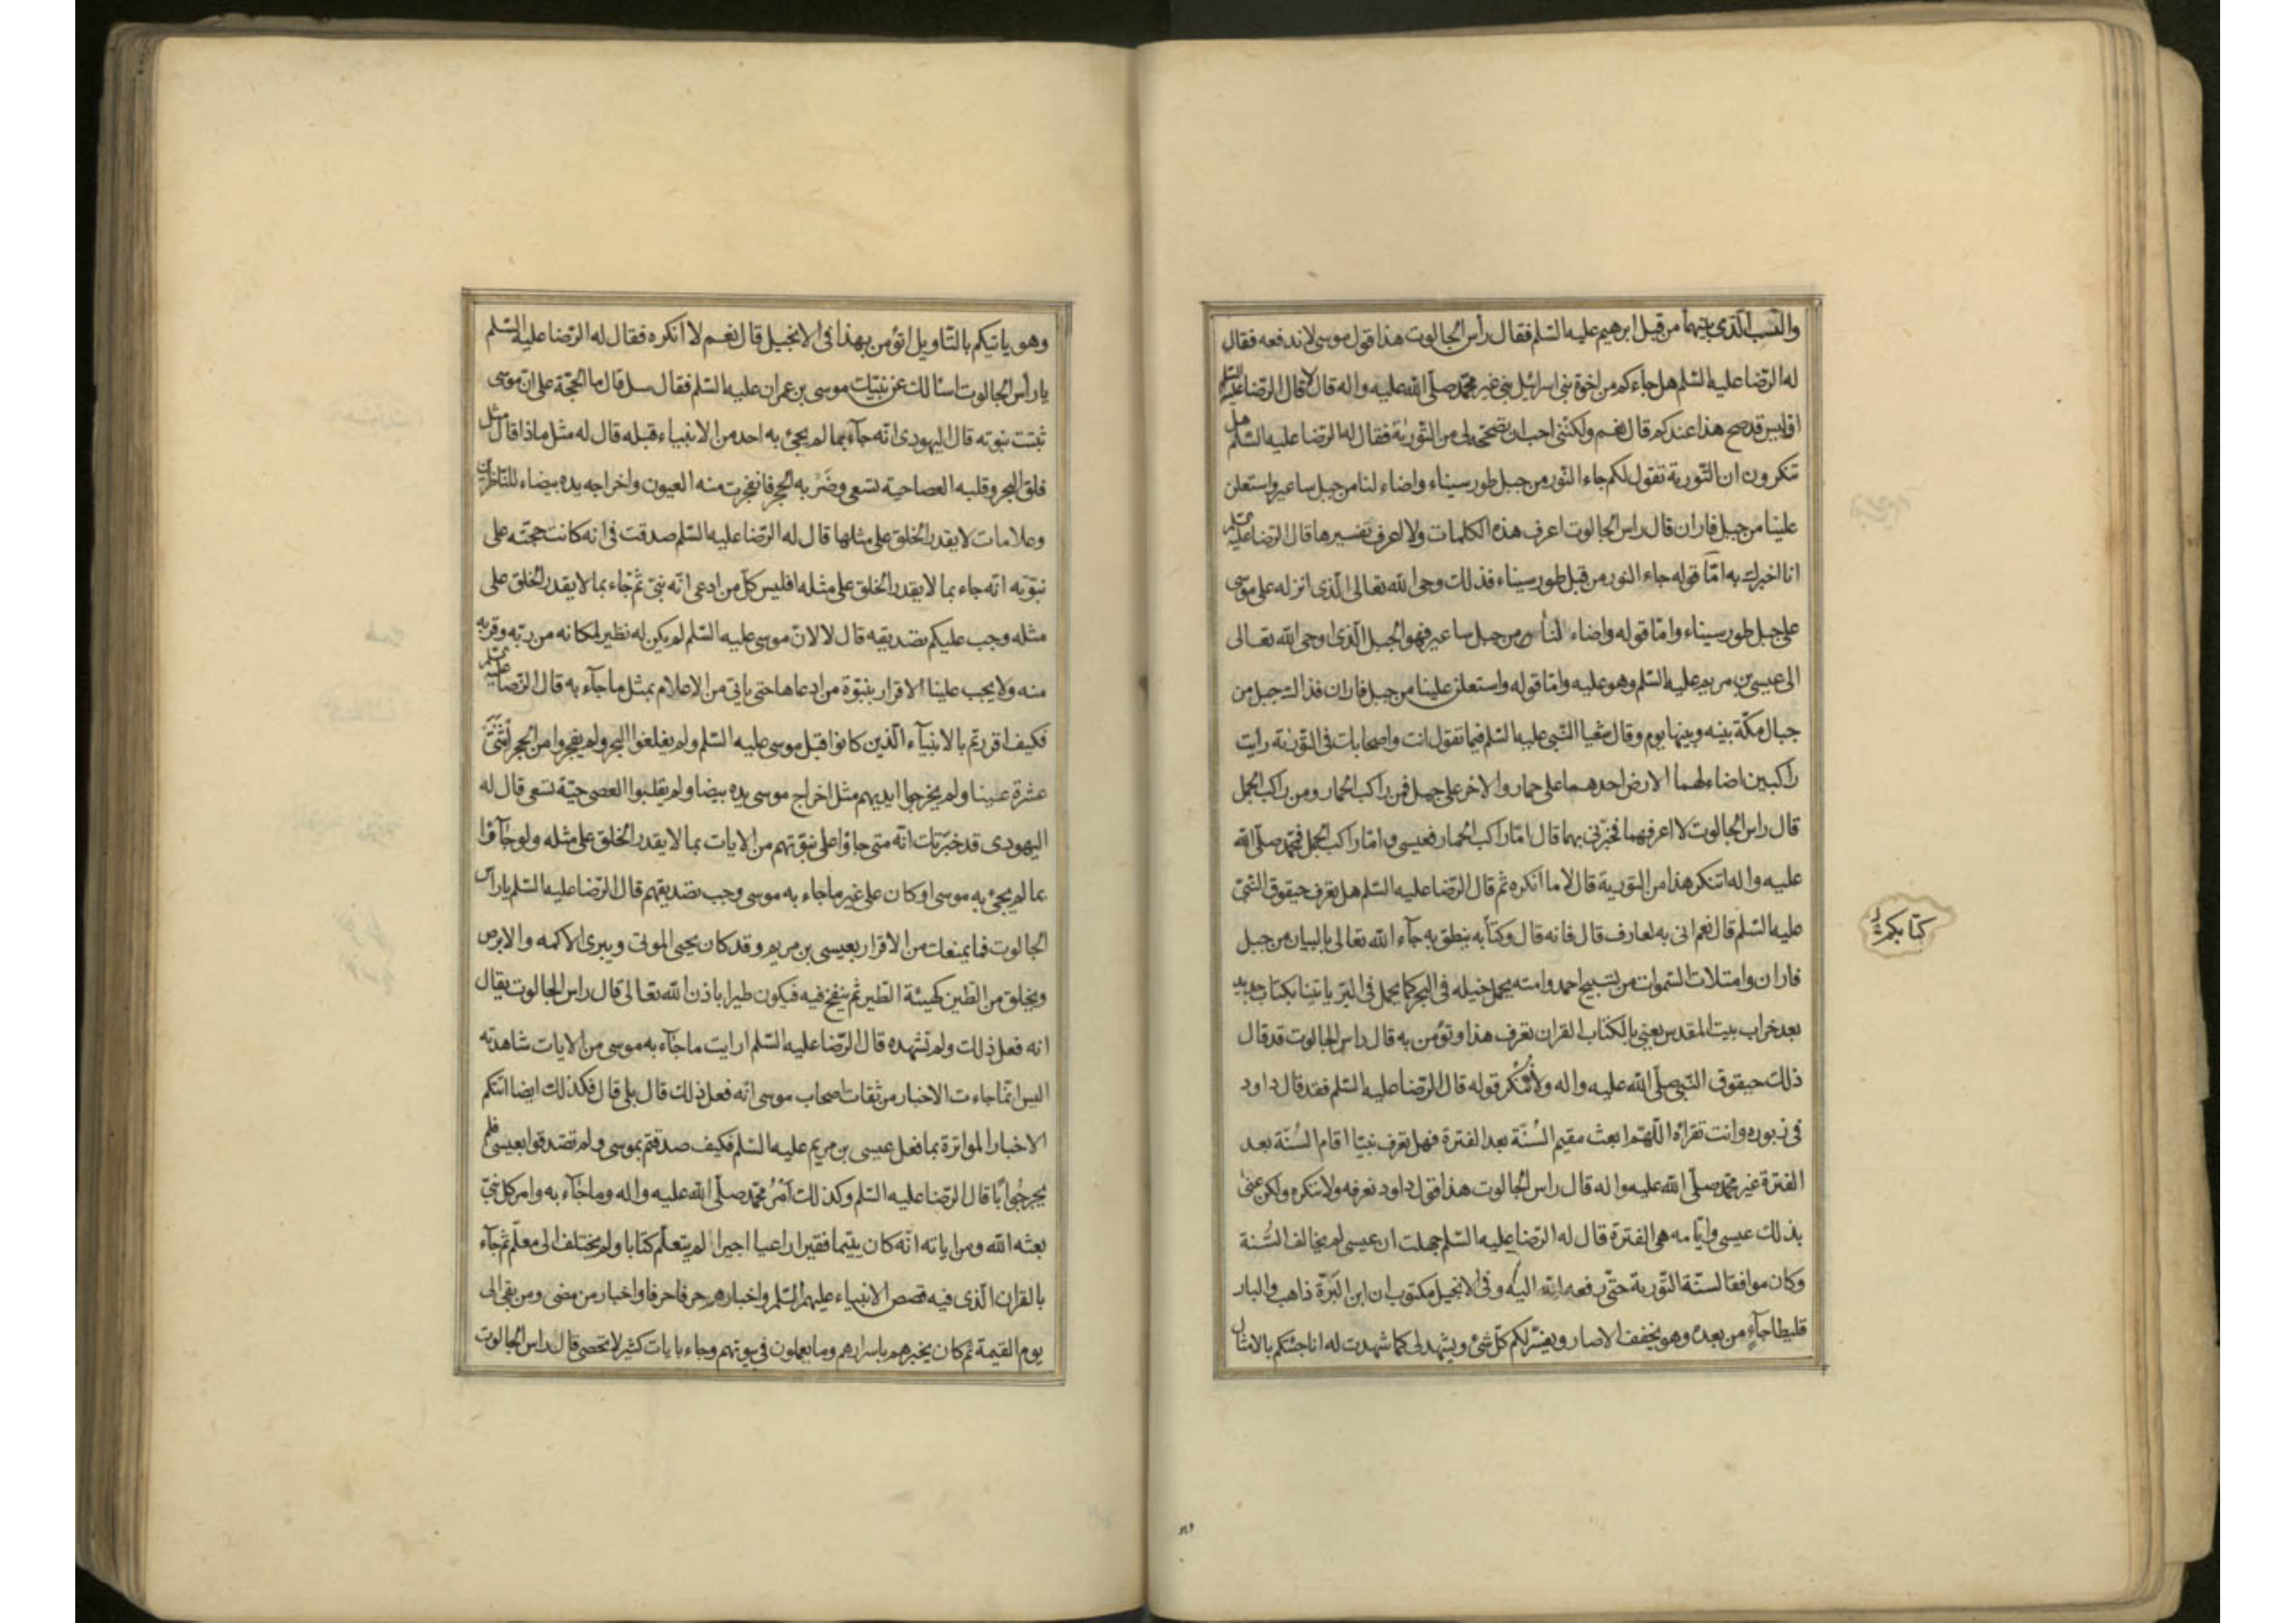 والنسب الذى بينهما من قبل ابرهيم عليه السّلم فقال رأس الجالوت هذا قول موسى لا ندفعه فقال
له الرّضا عليه السّلم هل جاءكم من اخوة بنى اسرائيل نبى غير محمّد صلّى الله عليه واله قال لا قال الرّضا عليه السلم
افليس قد صح هذا عندكم قال نعم ولكننى احب ان تصحّحه لى من التّورية فقال له الرّضا عليه السّلم هل
تنكرون ان التّورية تقول لكم جاء النّور من جبل طور سيناء واضاء لنا من جبل ساعير واستعلن
علينا من جبل فاران قال راس الجالوت اعرف هذه الكلمات ولا اعرف تفسيرها قال الرّضا عليه السلم
انا اخبرك به امّا قوله جاء النور من قبل طور سيناء فذلك وحى الله تعالى الّذى انزله على موسى
على جبل طور سيناء وامّا قوله واضاء لنا من جبل ساعير فهو الجبل الّذى اوحى الله تعالى
الى عيسى بن مريم عليه السّلم وهو عليه وامّا قوله واستعلن علينا من جبل فاران فذالك جبل من
جبال مكّة بينه وبينها يوم وقال شعيا النّبى عليه السّلم فيما تقول انت واصحابك فى التّورية رايت
راكبين اضاء لهما الارض احدهما على حمار والاخر على جمل فمن راكب الحمار ومن راكب الجمل
قال راس الجالوت لا اعرفهما فخبّرنى بهما قال امّا راكب الحمار فعيسى وامّا راكب الجمل فمحمّد صلّى الله
عليه واله اتنكر هذا من التورية قال لا ما انكره ثم قال الرّضا عليه السّلم هل تعرف حيقوق النّبىّ
عليه السّلم قال نعم انى به لعارف قال فانه قال وكتابه ينطق به جآء الله تعالى بالبيان من جبل
كتابكم
فاران وامتلات السّموات من تسبيح احمد وامته يحمل خيله فى البحر كما يحمل فى البرّ ياتينا بكتاب جديد
بعد خراب بيت المقدس يعنى بالكتاب القران تعرف هذا وتؤمن به قال راس الجالوت قد قال
ذلك حيقوق النّبى صلّى الله عليه واله ولا ننكر قوله قال الرّضا عليه السّلم فقد قال داود
فى زبوره وانت تقرأه اللّهمّ ابعث مقيم السُنّة بعد الفترة فهل تعرف نبيّا اقام السُنّة بعد
الفترة غير محمّد صلّى الله عليه واله قال راس الجالوت هذا قول داود نعرفه ولا ننكره ولكن عنى
بذلك عيسى وايّامه هى الفترة قال له الرّضا عليه السّلم جهلت ان عيسى لم يخالف السُّنة
وكان موافقا لسنّة التّورية حتّى رفعه الله اليه وفى الانجيل مكتوب ان ابن البَرّة ذاهب والبار
قليطا جآءٍ من بعده وهو يخفف الاصار ويفسّر لكم كلّ شئ ويشهد لى كما شهدت له انا جئتكم بالامثال
وهو ياتيكم بالتّاويل اتؤمن بهذا فى الانجيل قال نعم لا انكره فقال له الرّضا عليه السّلم
يا رأس الجالوت اسألك عن نبيّك موسى بن عمران عليه السّلم فقال سل قال ما الحجّة على انّ موسى
ثبتت نبوته قال اليهودى انّه جآء بما لم يجئ به احد من الانبياء قبله قال له مثل ماذا قال مثل
فلق البحر وقلبه العصا حية تسعى وضَرْبه الحجر فانفجرت منه العيون واخراجه يده بيضاء للنّاظرين
وعلامات لا يقدر الخلق على مثلها قال له الرّضا عليه السّلم صدقت فى انه كانت حجّته على
نبوّته انّه جاء بما لا يقدر الخلق على مثله افليس كلّ من ادعى انّه نبىّ ثم جاء بما لا يقدر الخلق على
مثله وجب عليكم تصديقه قال لا لانّ موسى عليه السّلم لم يكن له نظير لمكانه من ربّه وقربه
منه ولا يجب علينا الاقرار بنبوّة من ادعاها حتى ياتى من الاعلام بمثل ما جآء به قال الرّضا عليه السلم
فكيف اقررتم بالانبيآء الّذين كانوا قبل موسى عليه السّلم ولم يفلقوا البحر ولم يفجروا من الحجر اثنتى
عشرة عينا ولم يخرجوا ايديهم مثل اخراج موسى يده بيضا ولم يقلبوا العصى حيّة تسعى قال له
اليهودى قد خبّرتك انّه متى جاؤا على نبوّتهم من الايات بما لا يقدر الخلق على مثله ولو جآؤا
بما لم يجئ به موسى او كان على غير ما جاء به موسى وجب تصديقهم قال الرّضا عليه السّلم يا راس
الجالوت فما يمنعك من الاقرار بعيسى بن مريم وقد كان يحيى الموتى ويبرئ الاكمه والابرص
ويخلق من الطّين كهيئة الطّير ثم ينفخ فيه فيكون طيرا باذن الله تعالى قال راس الجالوت يقال
انه فعل ذلك ولم نشهده قال الرّضا عليه السّلم ارايت ما جآء به موسى من الايات شاهدته
اليس انّما جاءت الاخبار من ثقات اصحاب موسى انّه فعل ذلك قال بلى قال فكذلك ايضا اتتكم
الاخبار المواترة بما فعل عيسى بن مريم عليه السّلم فكيف صدقتم بموسى ولم تصدقوا بعيسى فلم
يحر جوابًا قال الرّضا عليه السّلم وكذلك أمْرُ محمّد صلّى الله عليه واله وما جآء به وامر كل نبىّ
بعثه الله ومن اياته انّه كان يتيما فقيرا راعيا اجيرا لم يتعلّم كتابا ولم يختلف الى معلّم ثم جآء
بالقران الّذى فيه قصص الانبياء عليهم السّلم واخبارهم حرفا حرفا واخبار من مضى ومن بقى الى
يوم القيمة ثم كان يخبرهم باسرارهم وما يعملون فى بيوتهم وجاء بايات كثير لا تحصى قال راس الجالوت